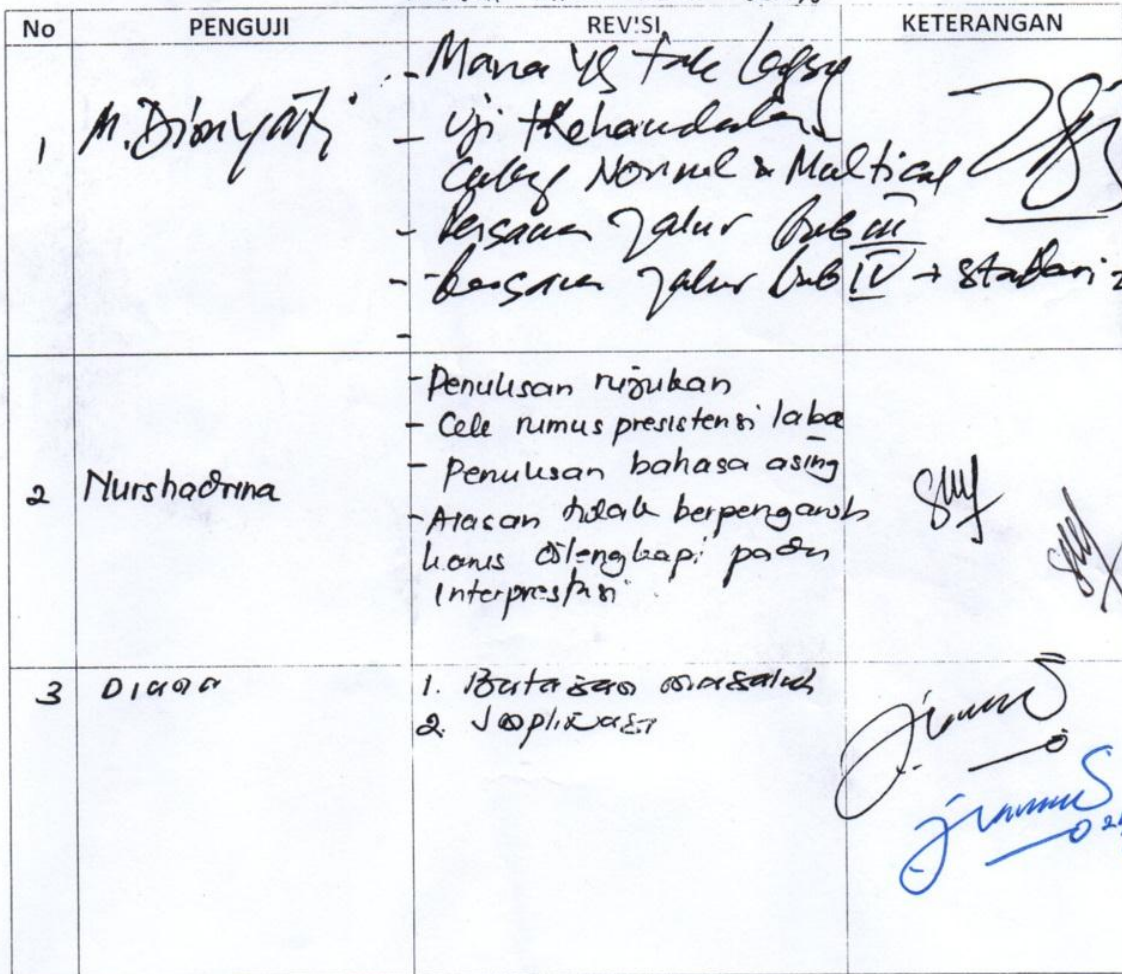 No PENGUJI REV'SI KETERANGAN
1 M. Dionyati
- Mana yg tak
- Uji Kehandalan
Normal & Multical
- Persaman Jalur Bab III
- Persaman Jalur Bab IV → standari
-
2 Nurshadrina
- Penulisan rujukan
- Cek rumus presistensi laba
- Penulisan bahasa asing
- Alasan tidak berpengaruh
harus dilengkapi pada
Interprestasi
3 Diana
1. Batasan masalah
2. Implikasi